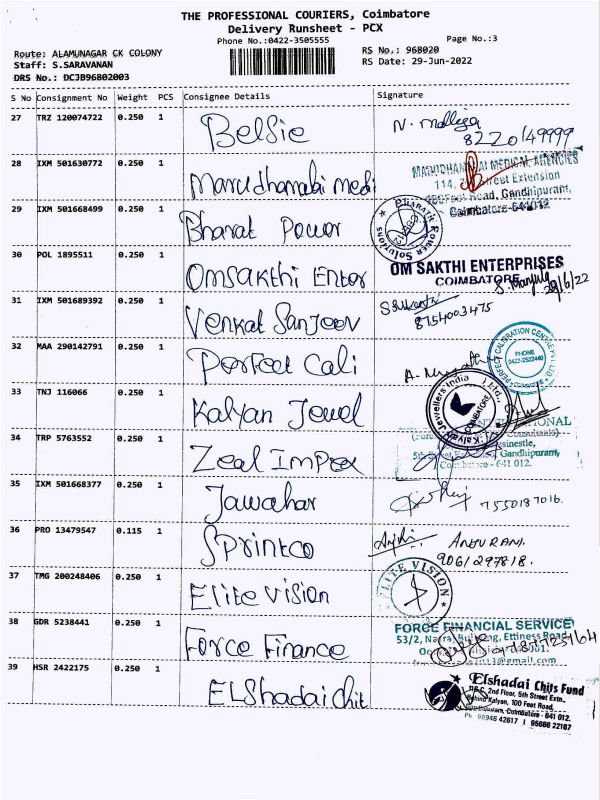 THE PROFESSIONAL COURIERS, Coimbatore
Delivery Runsheet - PCX
Phone No.:0422-3505555
Page No.:3
Route: ALAMUNAGAR CK COLONY
RS No.: 968020
Staff: S.SARAVANAN
RS Date: 29-Jun-2022
DRS No.: DCJB96802003
S No Consignment No Weight PCS Consignee Details Signature
27 TRZ 120074722 0.250 1 Belsie
8220149999
28 IXM 501630772 0.250 1 Marudhamalai medi
MARUDHAMALAI MEDICAL AGENCIES
114, Street Extension
100 Feet Road, Gandhipuram,
Coimbatore-641012
29 IXM 501668499 0.250 1 Bharat Power
BHARATH Power Solutions
30 POL 1895511 0.250 1 Omsakthi Enter
OM SAKTHI ENTERPRISES
COIMBATORE
31 IXM 501689392 0.250 1 Venkat Sanjeev
8754003475
32 MAA 290142791 0.250 1 Perfect Cali
PERFECT CALIBRATION CENTRE PVT LTD
PHONE
0422-2522440
COIMBATORE
33 TNJ 116066 0.250 1 Kalyan Jewel
Kalyan Jewellers India Ltd.,
COIMBATORE
34 TRP 5763552 0.250 1 Zeal Impex
Gandhipuram,
Coimbatore - 641 012.
35 IXM 501668377 0.250 1 Jawahar
7550187016.
36 PRO 13479547 0.115 1 Sprintco
ANDURANI.
9061297818.
37 TMG 200248406 0.250 1 Elite vision
ELITE VISION
38 GDR 5238441 0.250 1 Force Finance
FORCE FINANCIAL SERVICE
53/2, Building, Ettiness Road
39 HSR 2422175 0.250 1 ELShadai chit
Elshadai Chits Fund
2nd Floor, 5th Street Extn.,
Behind Kalyan, 100 Feet Road,
Gandhipuram, Coimbatore - 641 012.
Ph: 98946 42617 | 95666 22167